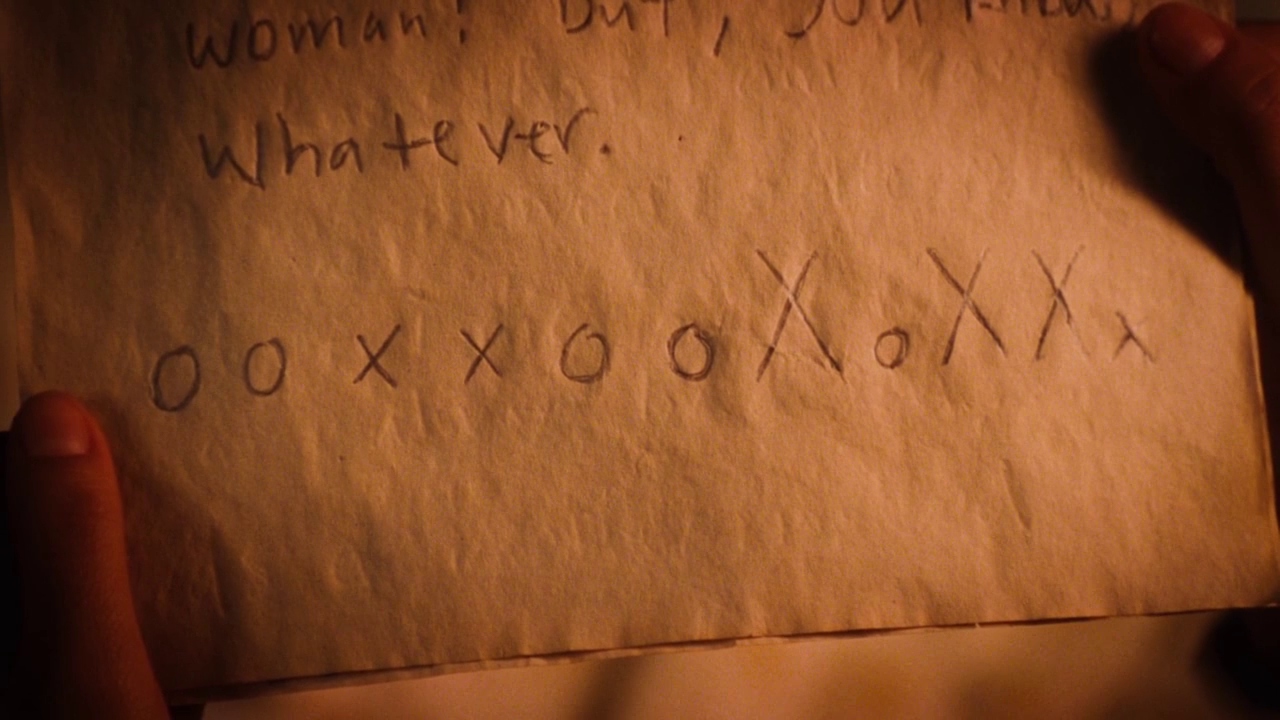 woman! But, you know,
Whatever.
o o x x o o X o X X x